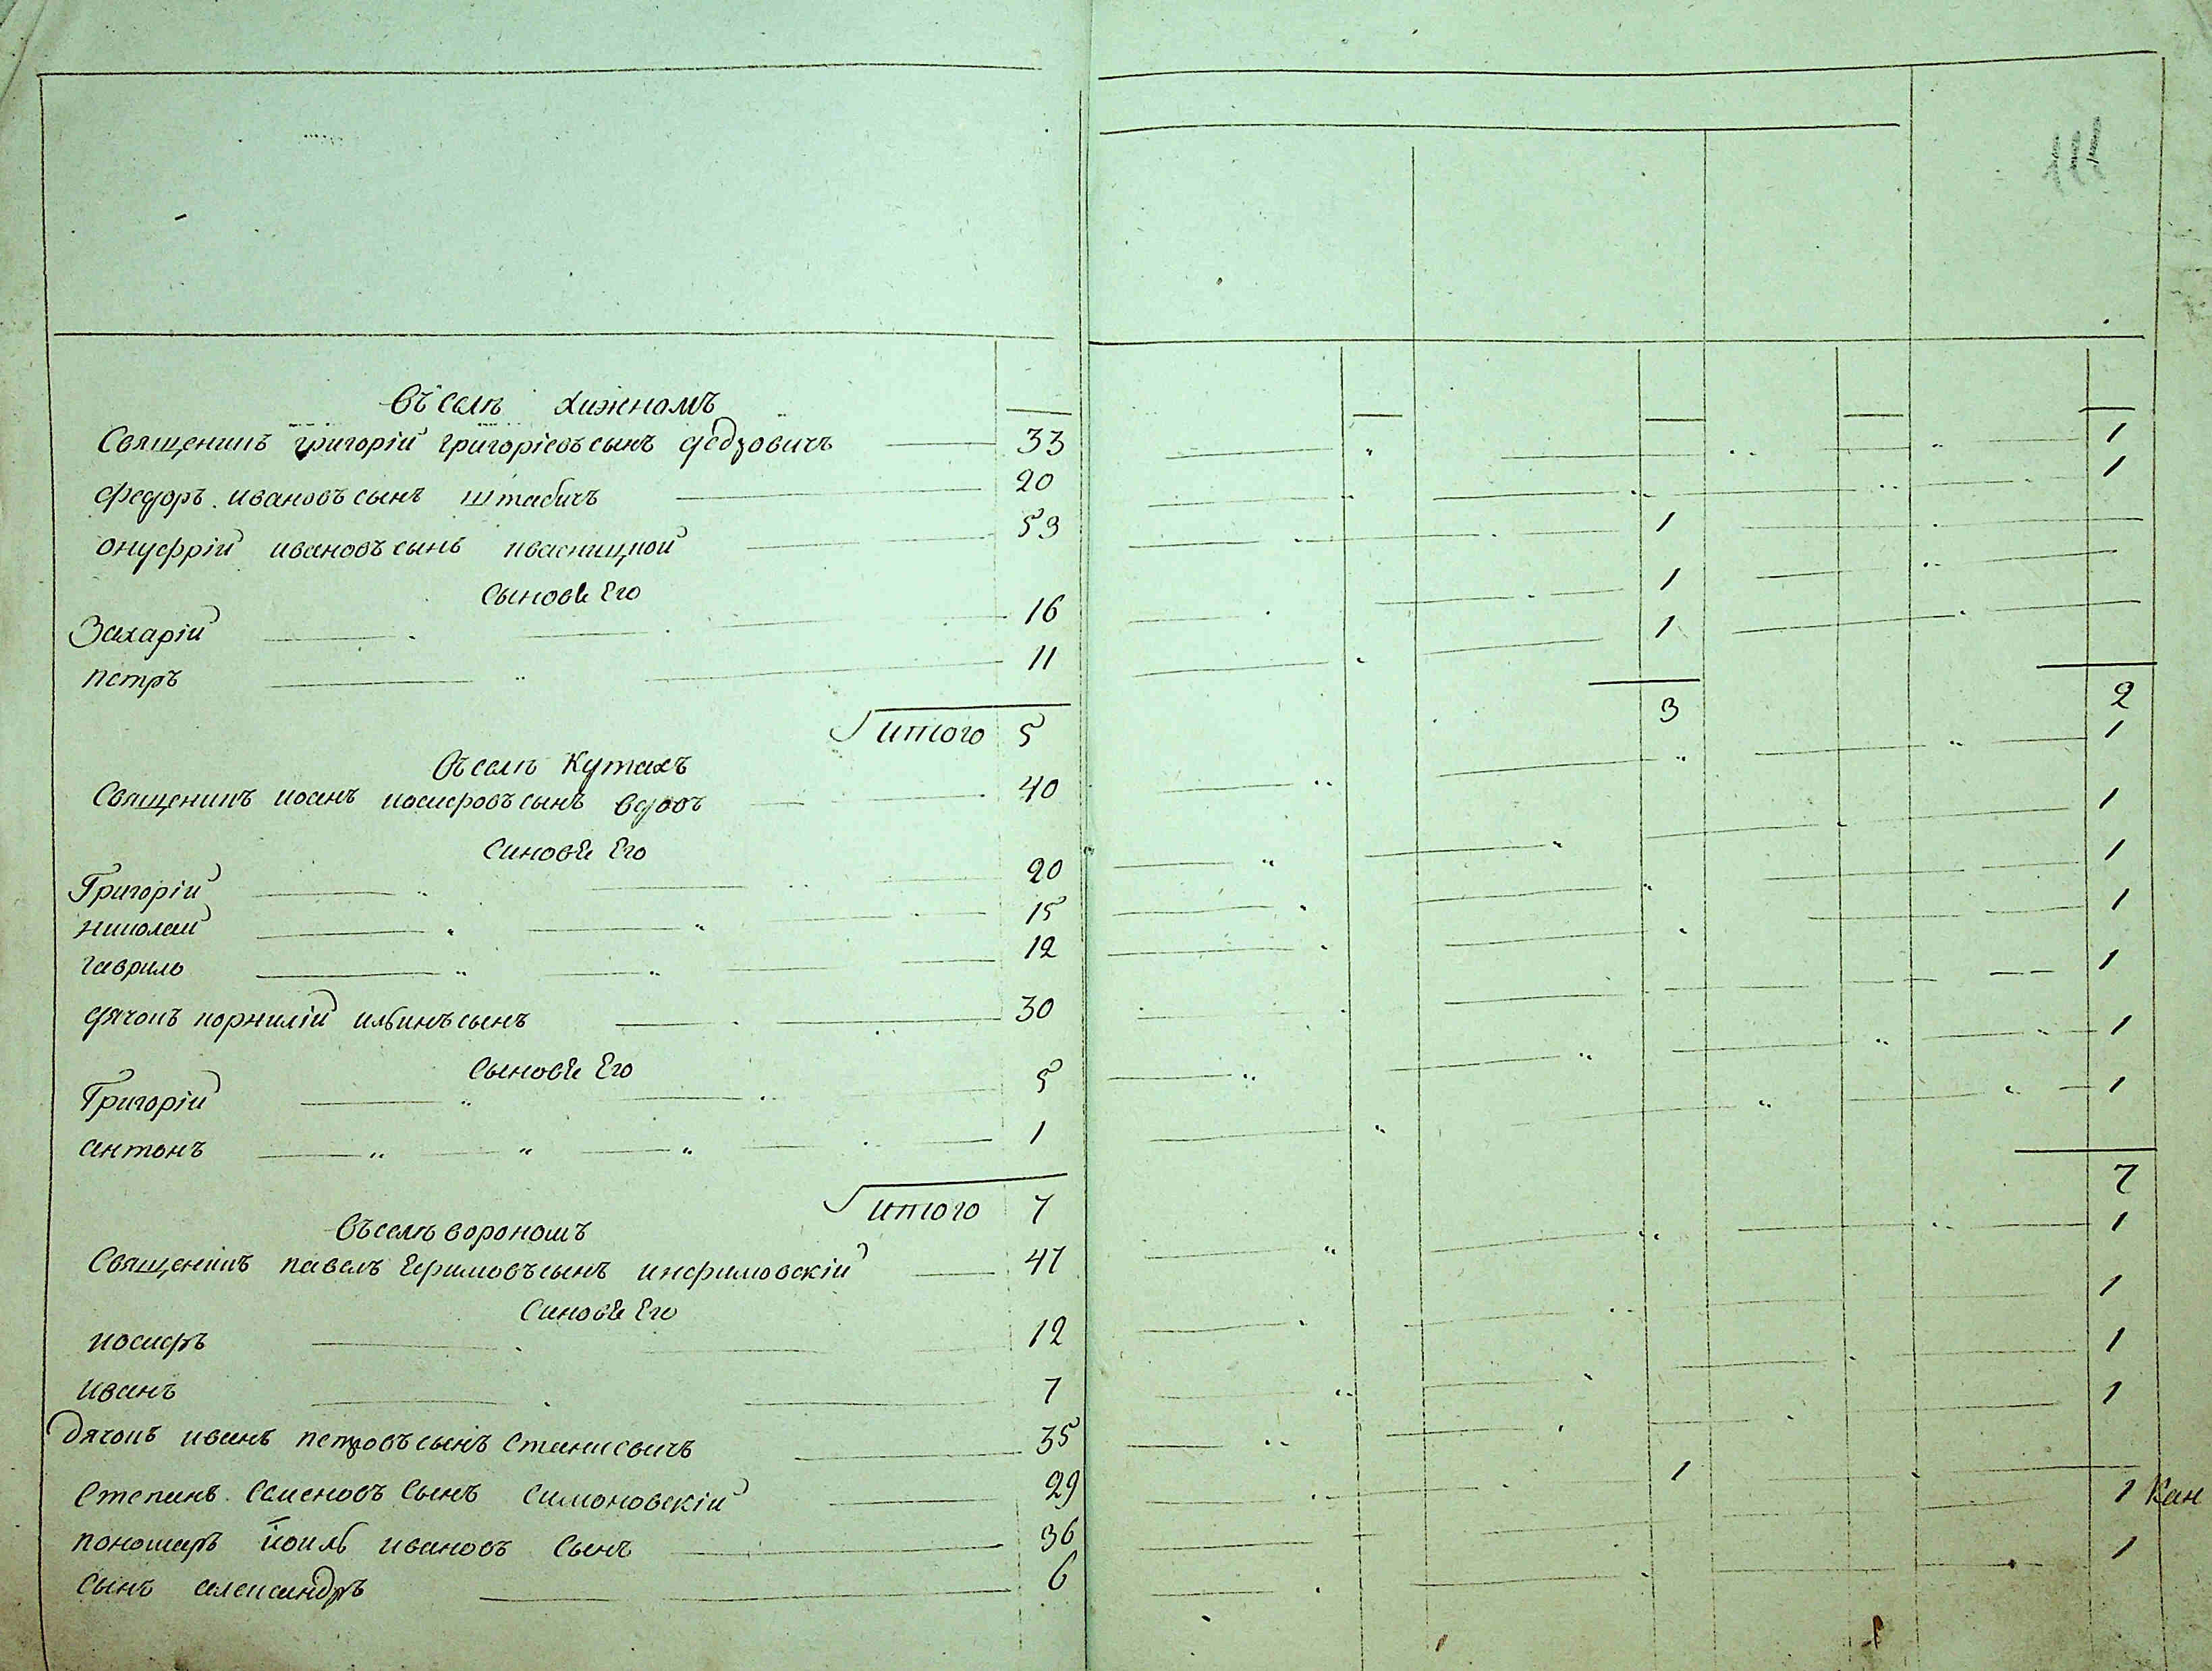 111
Въ селѣ Хижномъ
Священикъ григорій григоріевъ сынъ федоровичъ 33 1
федоръ ивановъ сынъ штабичъ 20 1
онуфрій ивановъ сынъ квасницкой 53 1
Сыновѣ Его
Захарій 16 1
петръ 11 1
итого 5 3 2
Въ селѣ Кутахъ
Священикъ иоанъ иосифовъ сынъ вдовъ 40 1
Синовѣ Его
Григорій 20 1
николай 15 1
гаврилъ 12 1
дячокъ корнилій ильинъ сынъ 30 1
Сыновѣ Его
Григорій 5 1
антонъ 1 1
итого 7 7
Въ селѣ ворономъ
Священикъ павелъ Ефимовъ сынъ 47 1
Синовѣ Его
иосифъ 12 1
иванъ 7 1
Дячокъ иванъ петровъ сынъ Станисвичъ 35 1
Степанъ Семеновъ Сынъ Симоновскій 29 1
пономаръ іоиль ивановъ Сынъ 36 1 Кан
Сынъ александръ 6 1